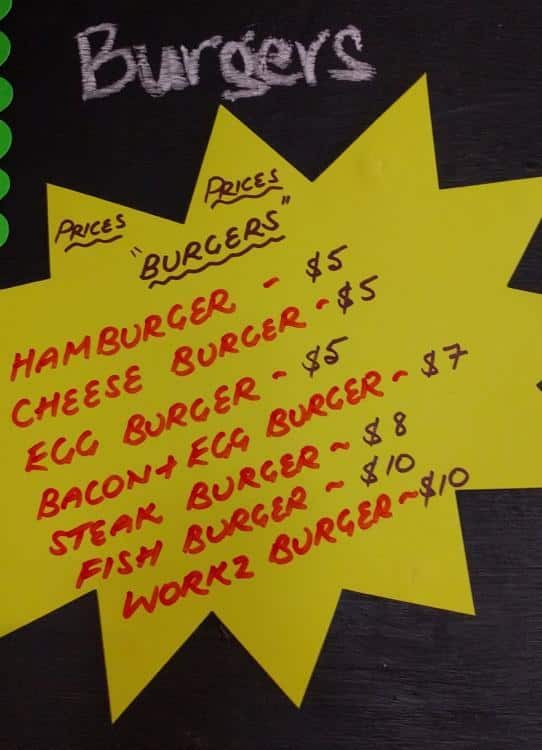 Burgers
PRICES PRICES
"BURGERS"
HAMBURGER - $5
CHEESE BURGER ~ $5
EGG BURGER ~ $5
BACON + EGG BURGER ~ $7
STEAK BURGER ~ $8
FISH BURGER ~ $10
WORKZ BURGER ~ $10